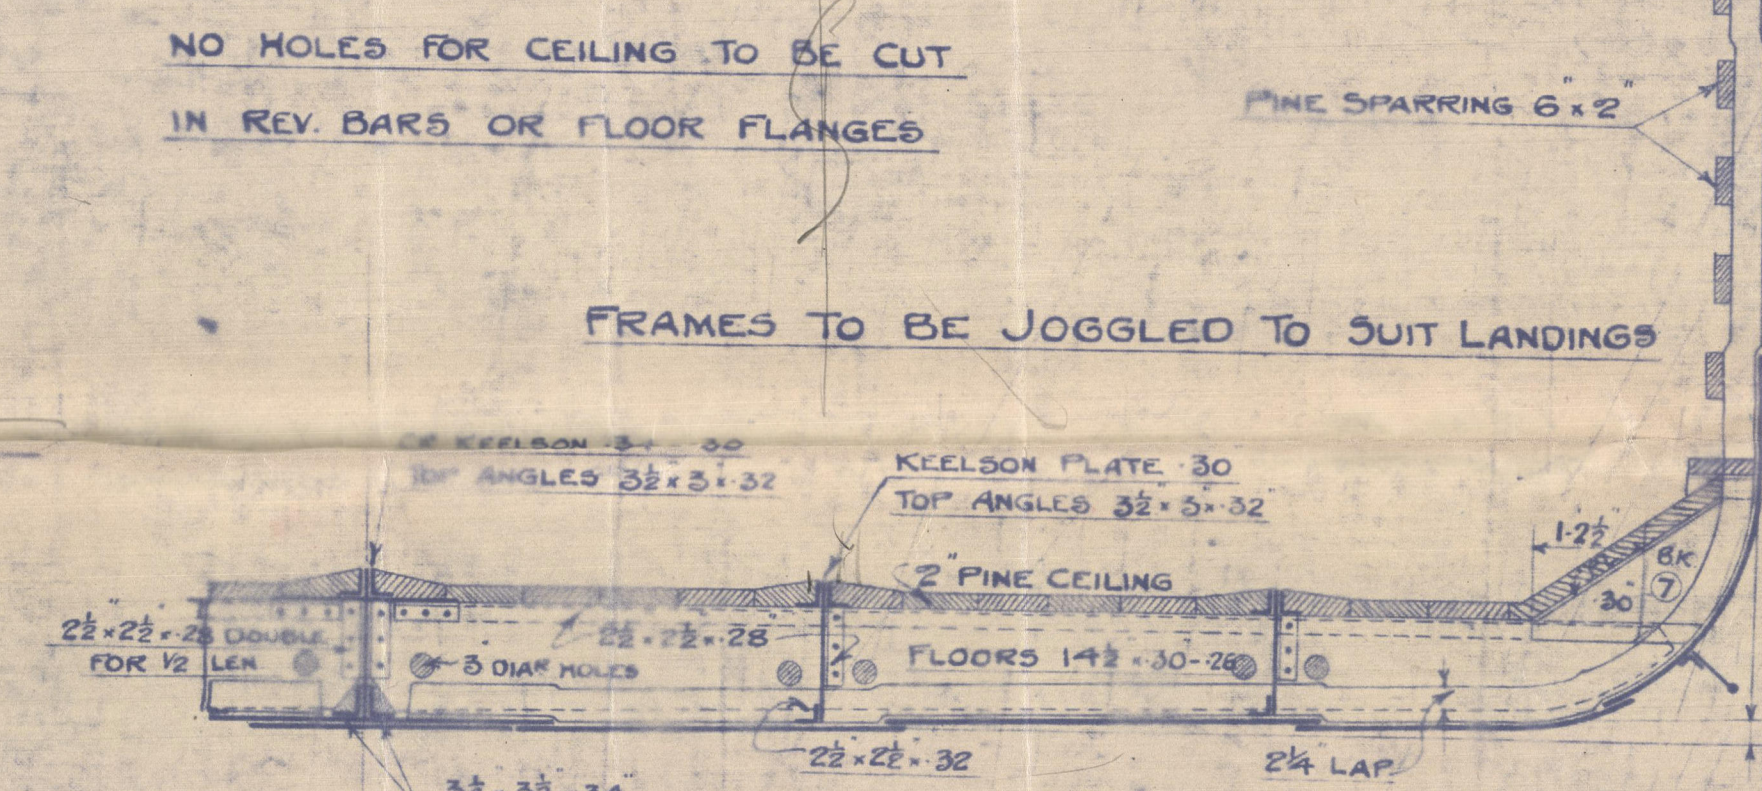 NO HOLES FOR CEILING TO BE CUT
IN REV. BARS OR FLOOR FLANGES
PINE SPARRING 6" x 2"
FRAMES TO BE JOGGLED TO SUIT LANDINGS
KEELSON ·34 - 30
TOP ANGLES 3½" x 3" x ·32
KEELSON PLATE ·30"
TOP ANGLES 3½" x 3" x ·32"
2" PINE CEILING
1·2½"
BK
7
·30"
2½" x 2½" x ·28 DOUBLE
FOR ½ LEN
3" DIAR HOLES
2½ x 2½ x ·28"
FLOORS 14½ x ·30 - ·26
2½" x 2½" x ·32
2¼" LAP
3½ 3½ ·34"